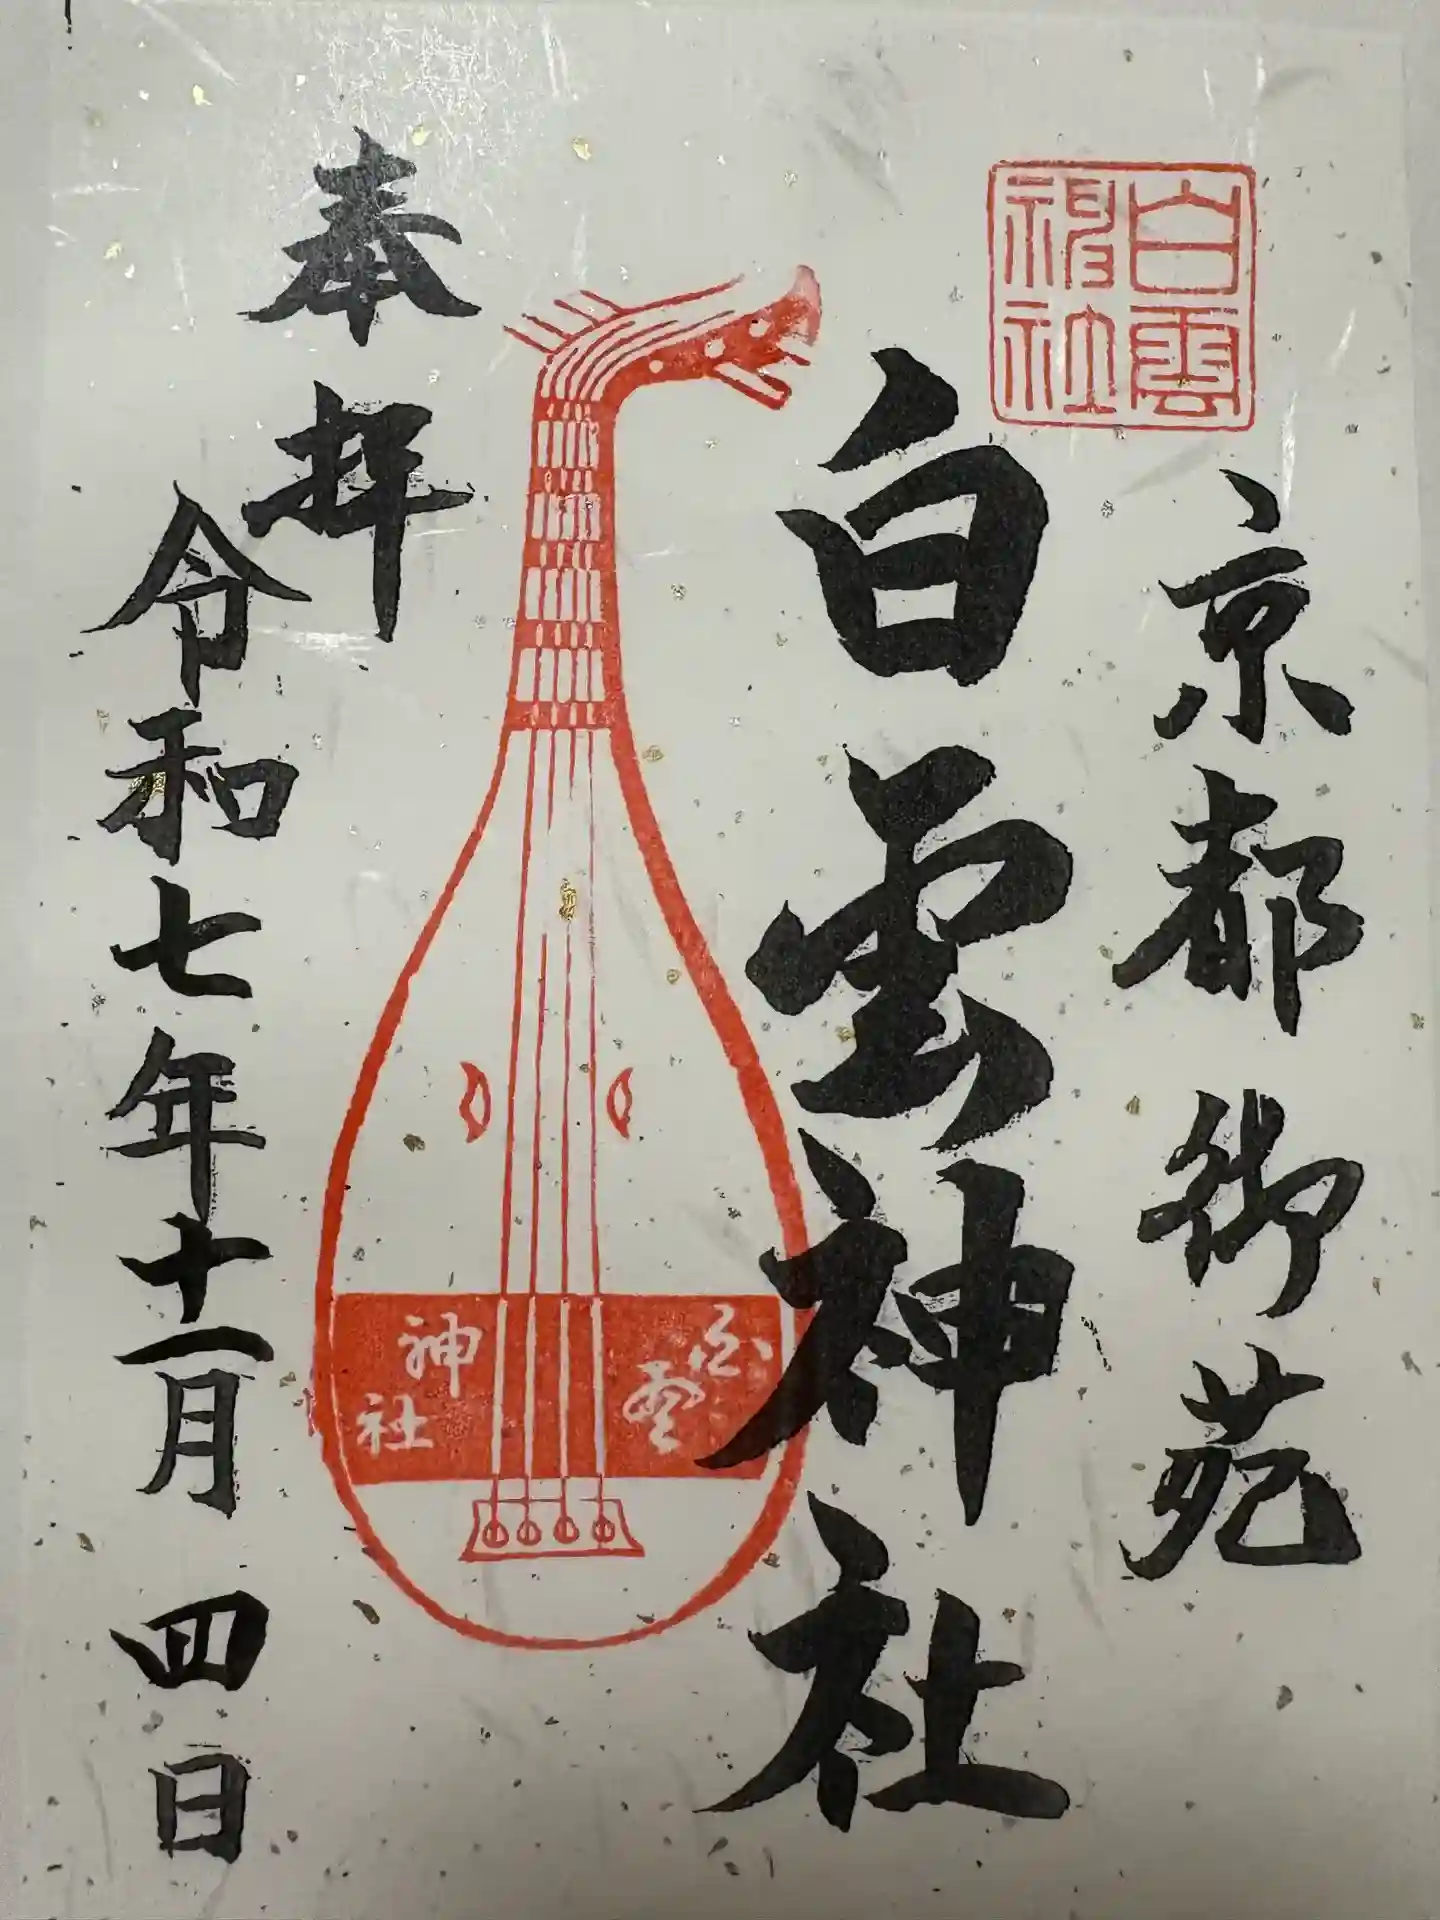 白雲
神社
京都御苑
白雲神社
白雲
神社
奉拝
令和七年十一月四日